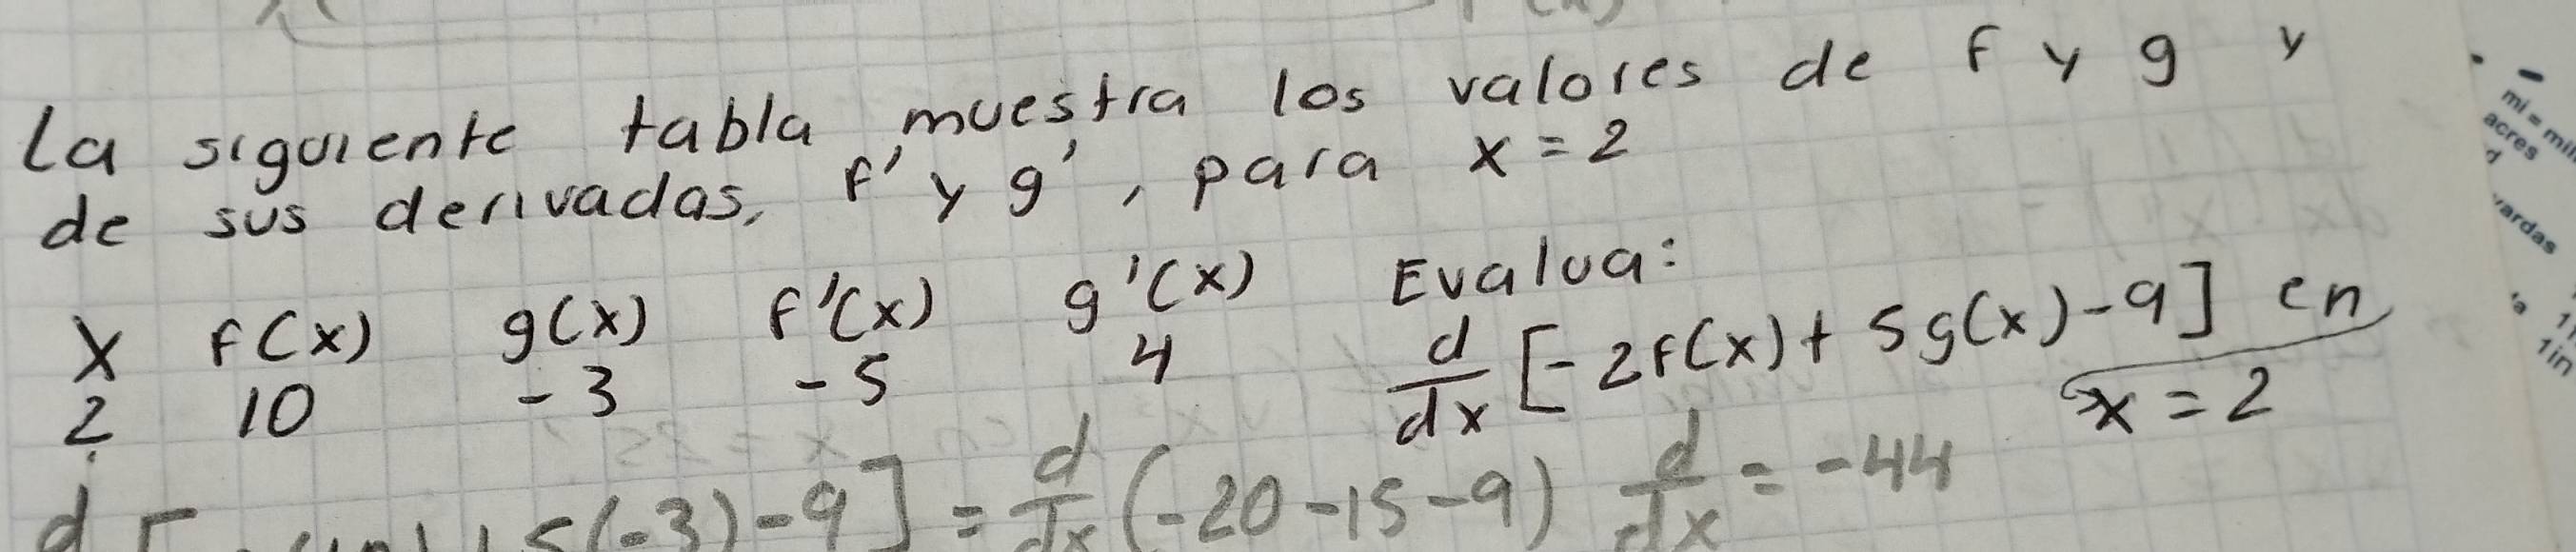 La siguiente tabla muestra los valores de f y g y
de sus derivadas, f' y g', para x = 2
X f(x) g(x) f'(x) g'(x) Evalua:
2 10 -3 -5 4 d/dx [-2f(x) + 5g(x) -9] en
x = 2
5(-3)-9] = d/dx (-20-15-9) d/dx = -44
mi = mil
acres
d
yardas
1in